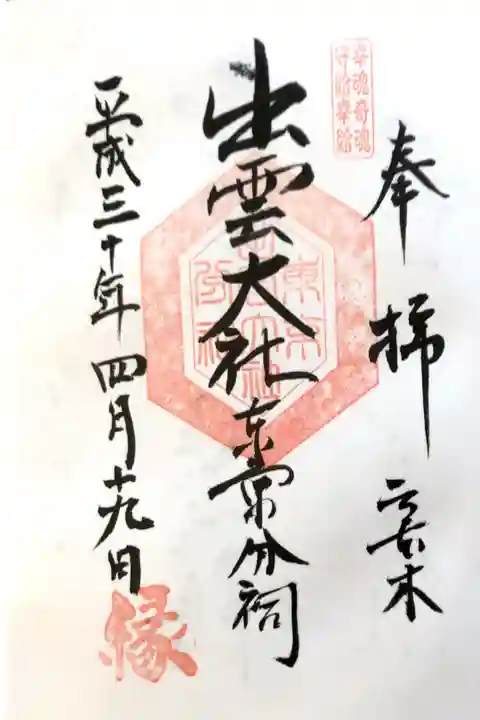 奉拝 六本木
幸魂奇魂
守給幸給
出雲大社東京分祠
東京
出雲大社
分祠
平成三十年四月十九日
縁